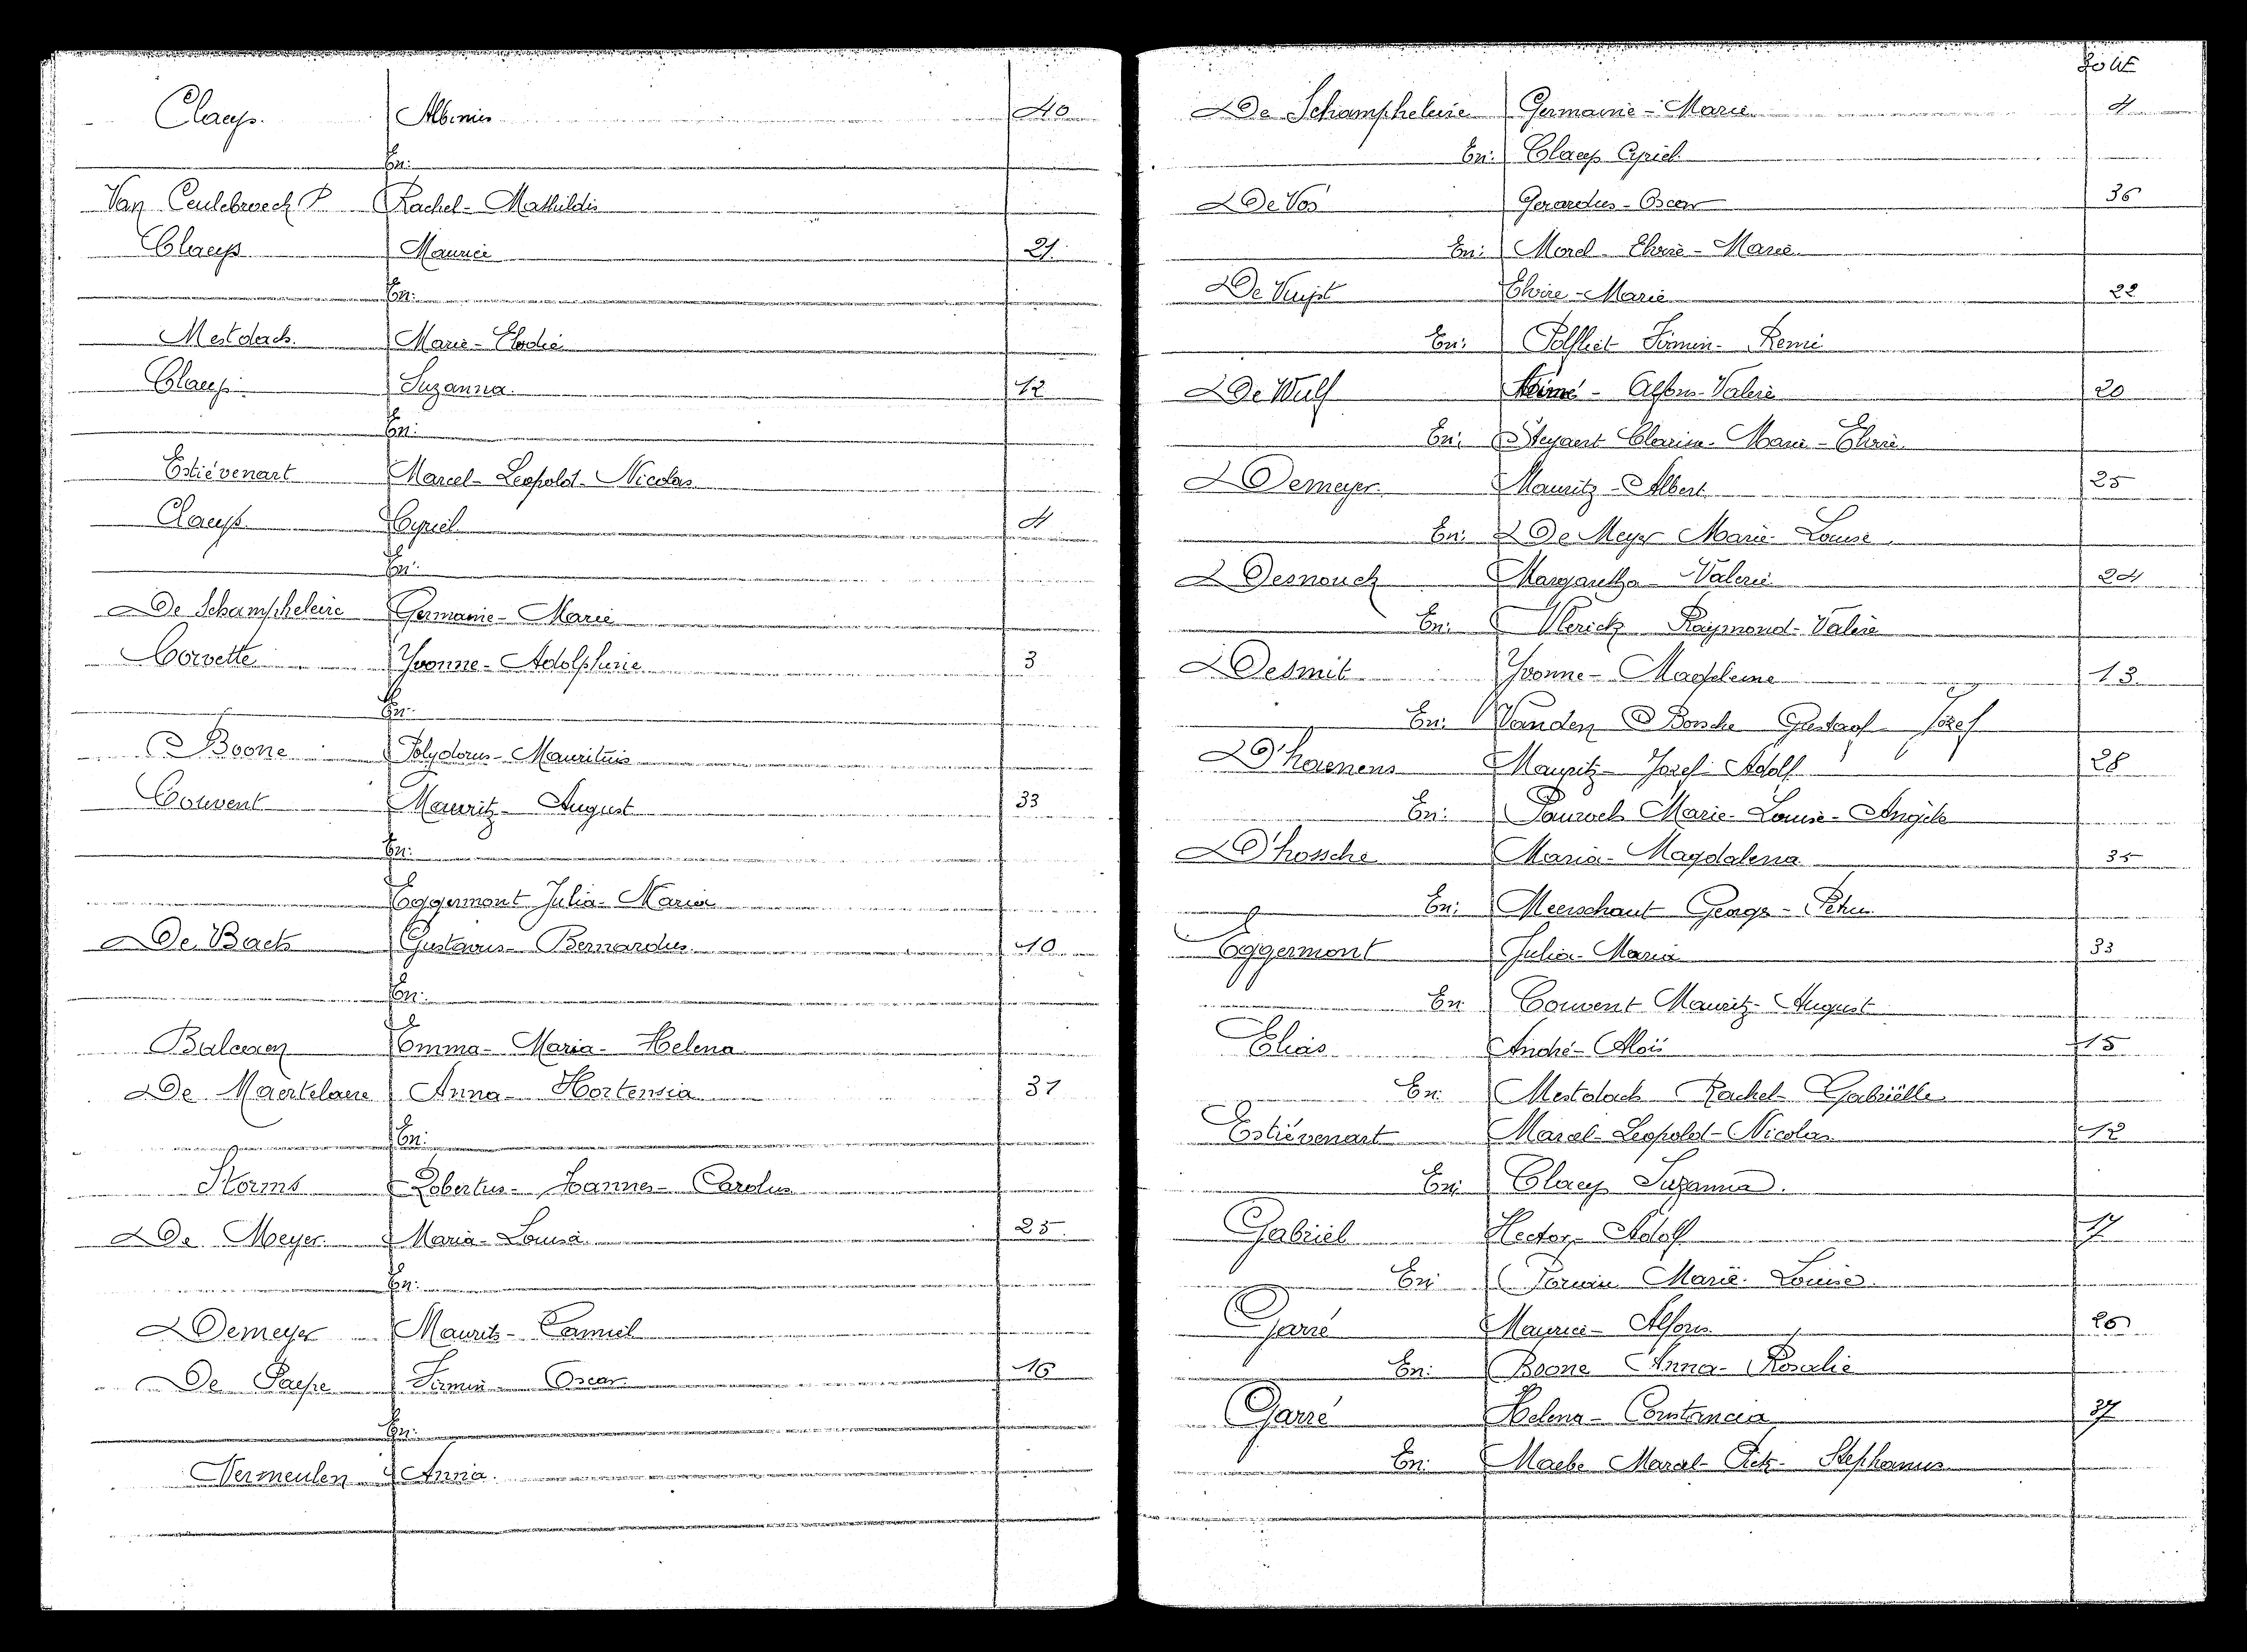 Claeys. Albinus 40
En:
Van Ceulebroeck Rachel - Mathildis
Claeys Maurice 21.
En:
Mestdach. Marie - Elodie
Claeys. Suzanna. 12
En:
Estiévenart Marcel - Leopold - Nicolas
Claeys. Cyriel 4
En:
De Schampheleire Germanie - Marie
Corvette Yvonne - Adolphine 3
En:
Boone Polydorus - Mauritius
Couvent Mauritz - August 33
En:
Eggermont Julia - Maria
De Back Gustavus - Bernardus. 10
En:
Balcaen Emma - Maria - Helena
De Maertelaere Anna - Hortensia 31
En:
Storms Robertus - Joannes - Carolus
De Meyer. Maria - Louisa 25.
En:
Demeyer Maurits - Camiel
De Paepe Firmin - Oscar 16
En:
Vermeulen Anna.
FOLIE
De Schampheleire Germanie - Marie 4
En: Claeys Cyriel
De Vos Gerardus - Oscar 36
En: Morel Elvire - Marie.
De Vuyst Elvire - Marie 22
En: Polfliet Firmin - Remi
De Wulf - Alfons - Valere 20
En: Steyaert Clarisse - Marie - Elvire.
Demeyer. Mauritz - Albert 25
En: De Meyer Marie - Louise.
Desnouck Margaretha - Valerie 24
En: Vlerick Raymond - Valere
Desmit Yvonne - Magdeleine 13
En: Vanden Bossche Gustaaf Jozef
D'haenens Mauritz - Jozef - Adolf 28
En: Pauwels Marie - Louise - Angèle
D'hossche Maria - Magdalena 35
En: Meerschaut George - Petrus
Eggermont Julia - Maria 33
En: Couvent Mauritz - August
Elias André - Aloïs 15
En: Mestdach Rachel - Gabriëlle
Estiévenart Marcel - Leopold - Nicolas 12
En: Claeys Suzanna.
Gabriël Hector - Adolf 17
En: Marie - Louise.
Garré Maurice - Alfons 26
En: Boone Anna - Rosalie
Garré Helena - Constancia 37
En: Maebe Marcel - Stephanus